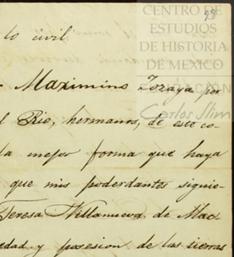 CENTRO DE
ESTUDIOS
DE HISTORIA
DE MEXICO
Carlos Slim
lo civil
Maximino Zozaya por
l Rio, hermanos, de este co-
la mejor forma que haya
que mis poderdantes siguie-
Teresa Villanueva de Mac
edad y posesion de las tierras